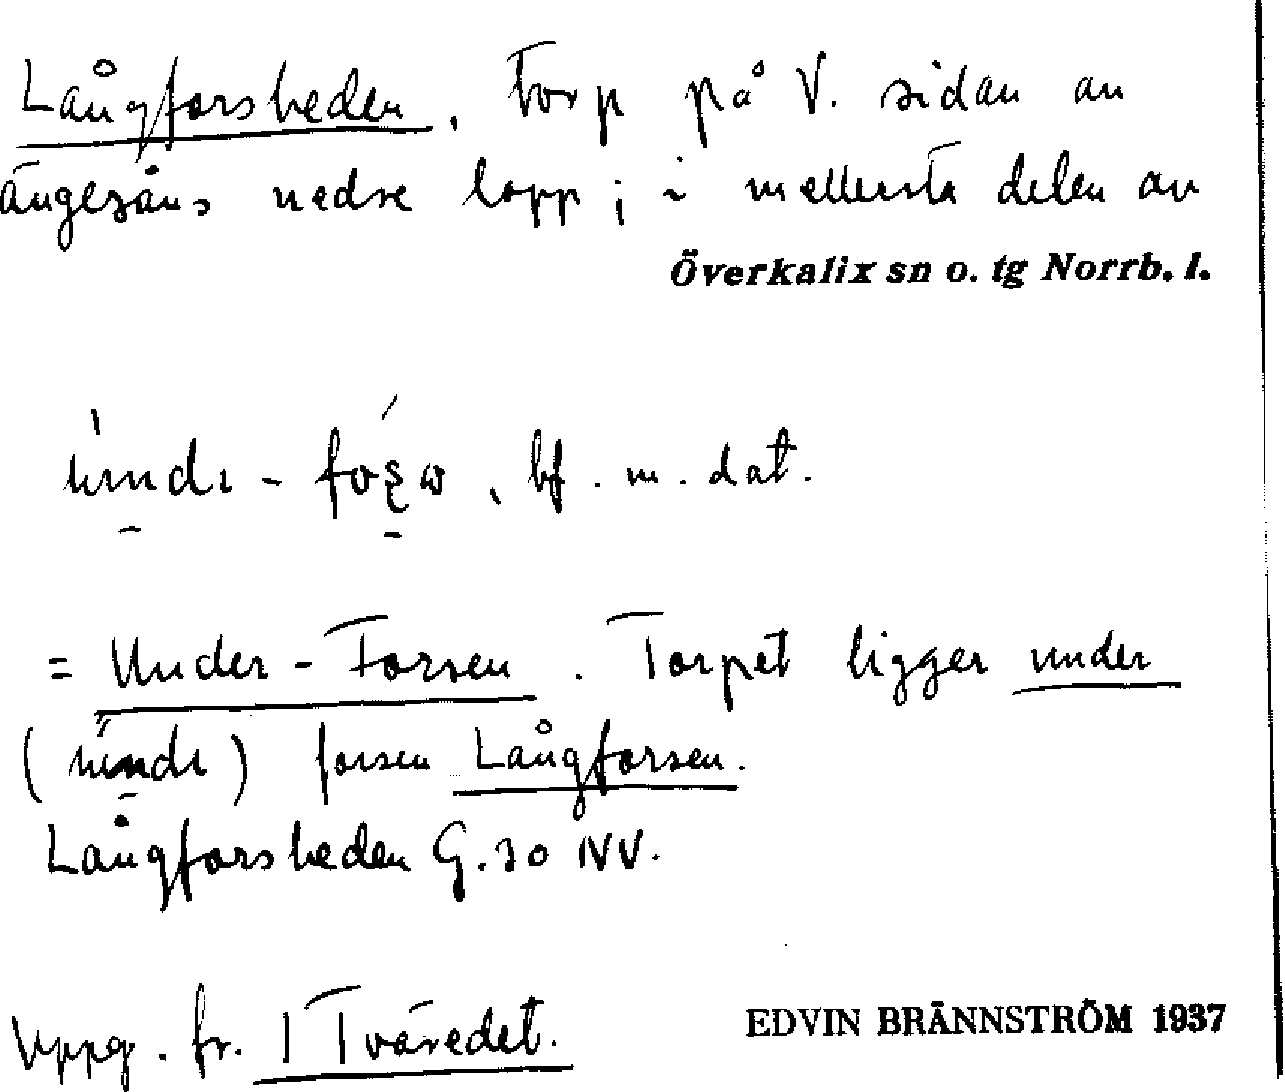 Långforsheden, Torp på V. sidan av
ängesåns nedre lopp; i mellersta delen av
Överkalix sn o. tg Norrb. l.
bf. m. dat.
= Under-Forsen. Torpet ligger under
( ) forsen Långforsen.
Långforsheden G. 30 NV.
Uppg. fr. 1 Tväredet.
EDVIN BRÄNNSTRÖM 1937